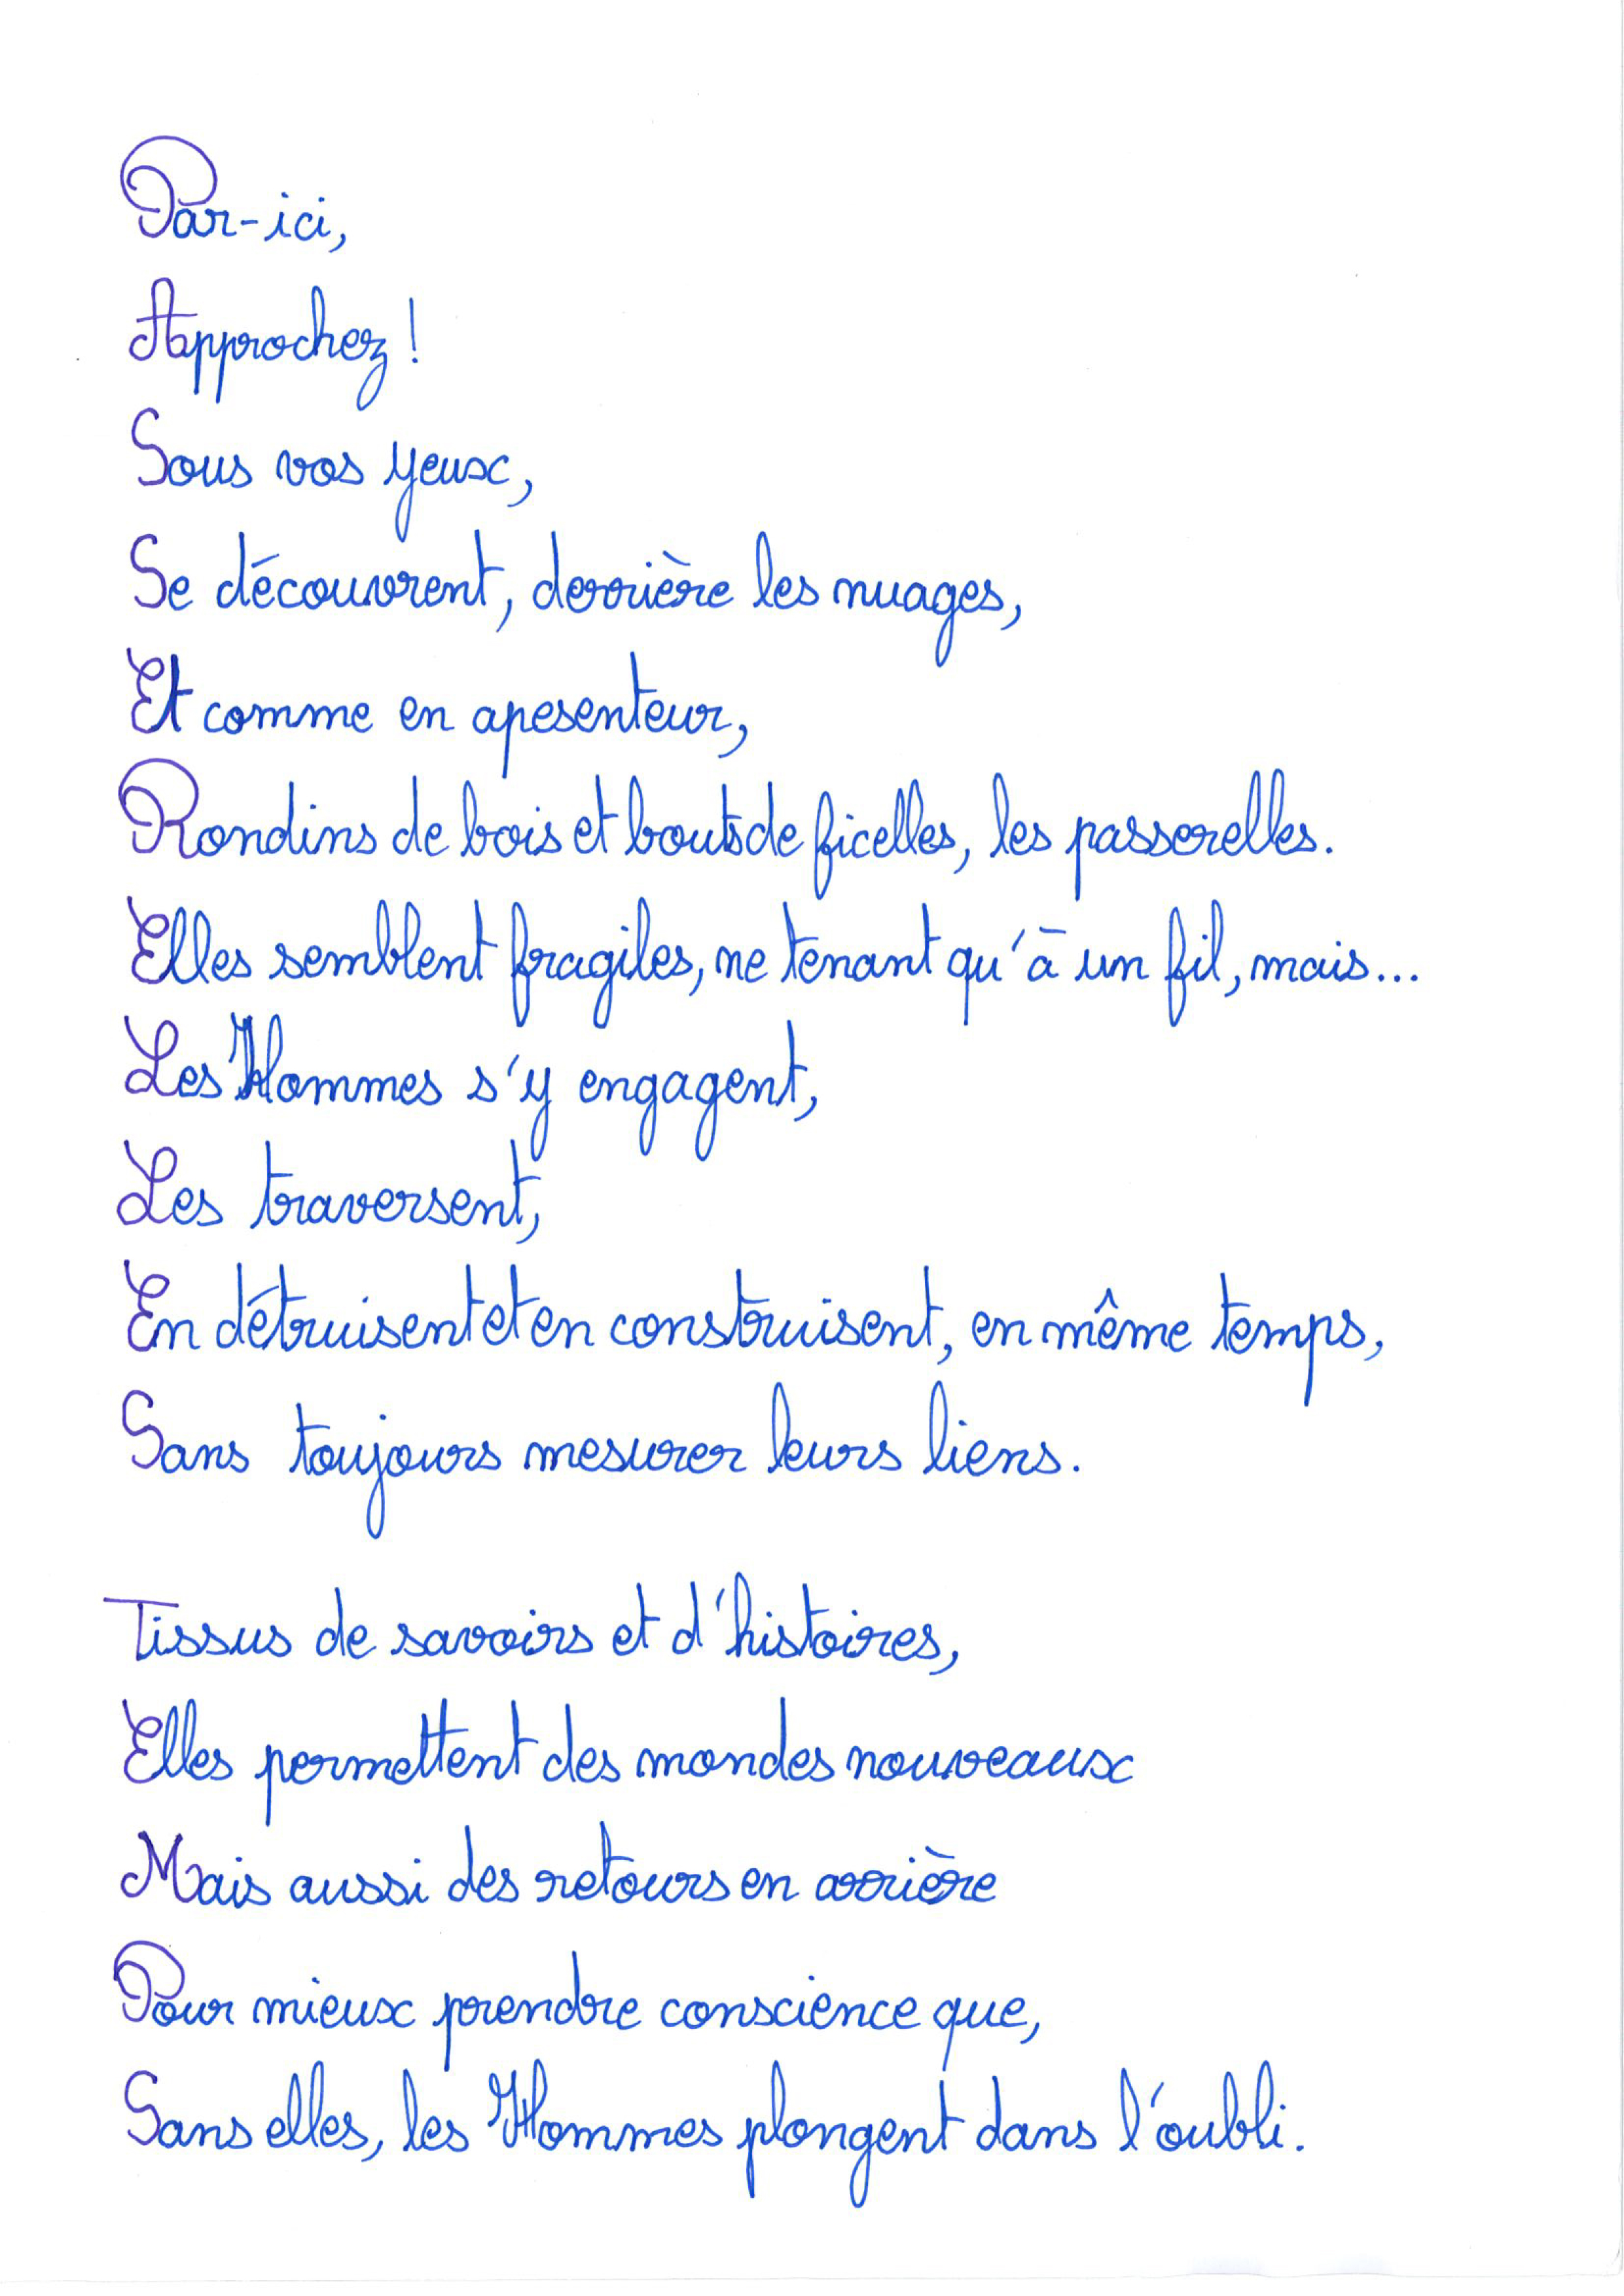 Par-ici,
Approchez !
Sous vos yeux,
Se découvrent, derrière les nuages,
Et comme en apesenteur,
Rondins de bois et bouts de ficelles, les passerelles.
Elles semblent fragiles, ne tenant qu'à un fil, mais...
Les Hommes s'y engagent,
Les traversent,
En détruisent et en construisent, en même temps,
Sans toujours mesurer leurs liens.
Tissus de savoirs et d'histoires,
Elles permettent des mondes nouveaux
Mais aussi des retours en arrière
Pour mieux prendre conscience que,
Sans elles, les Hommes plongent dans l'oubli.